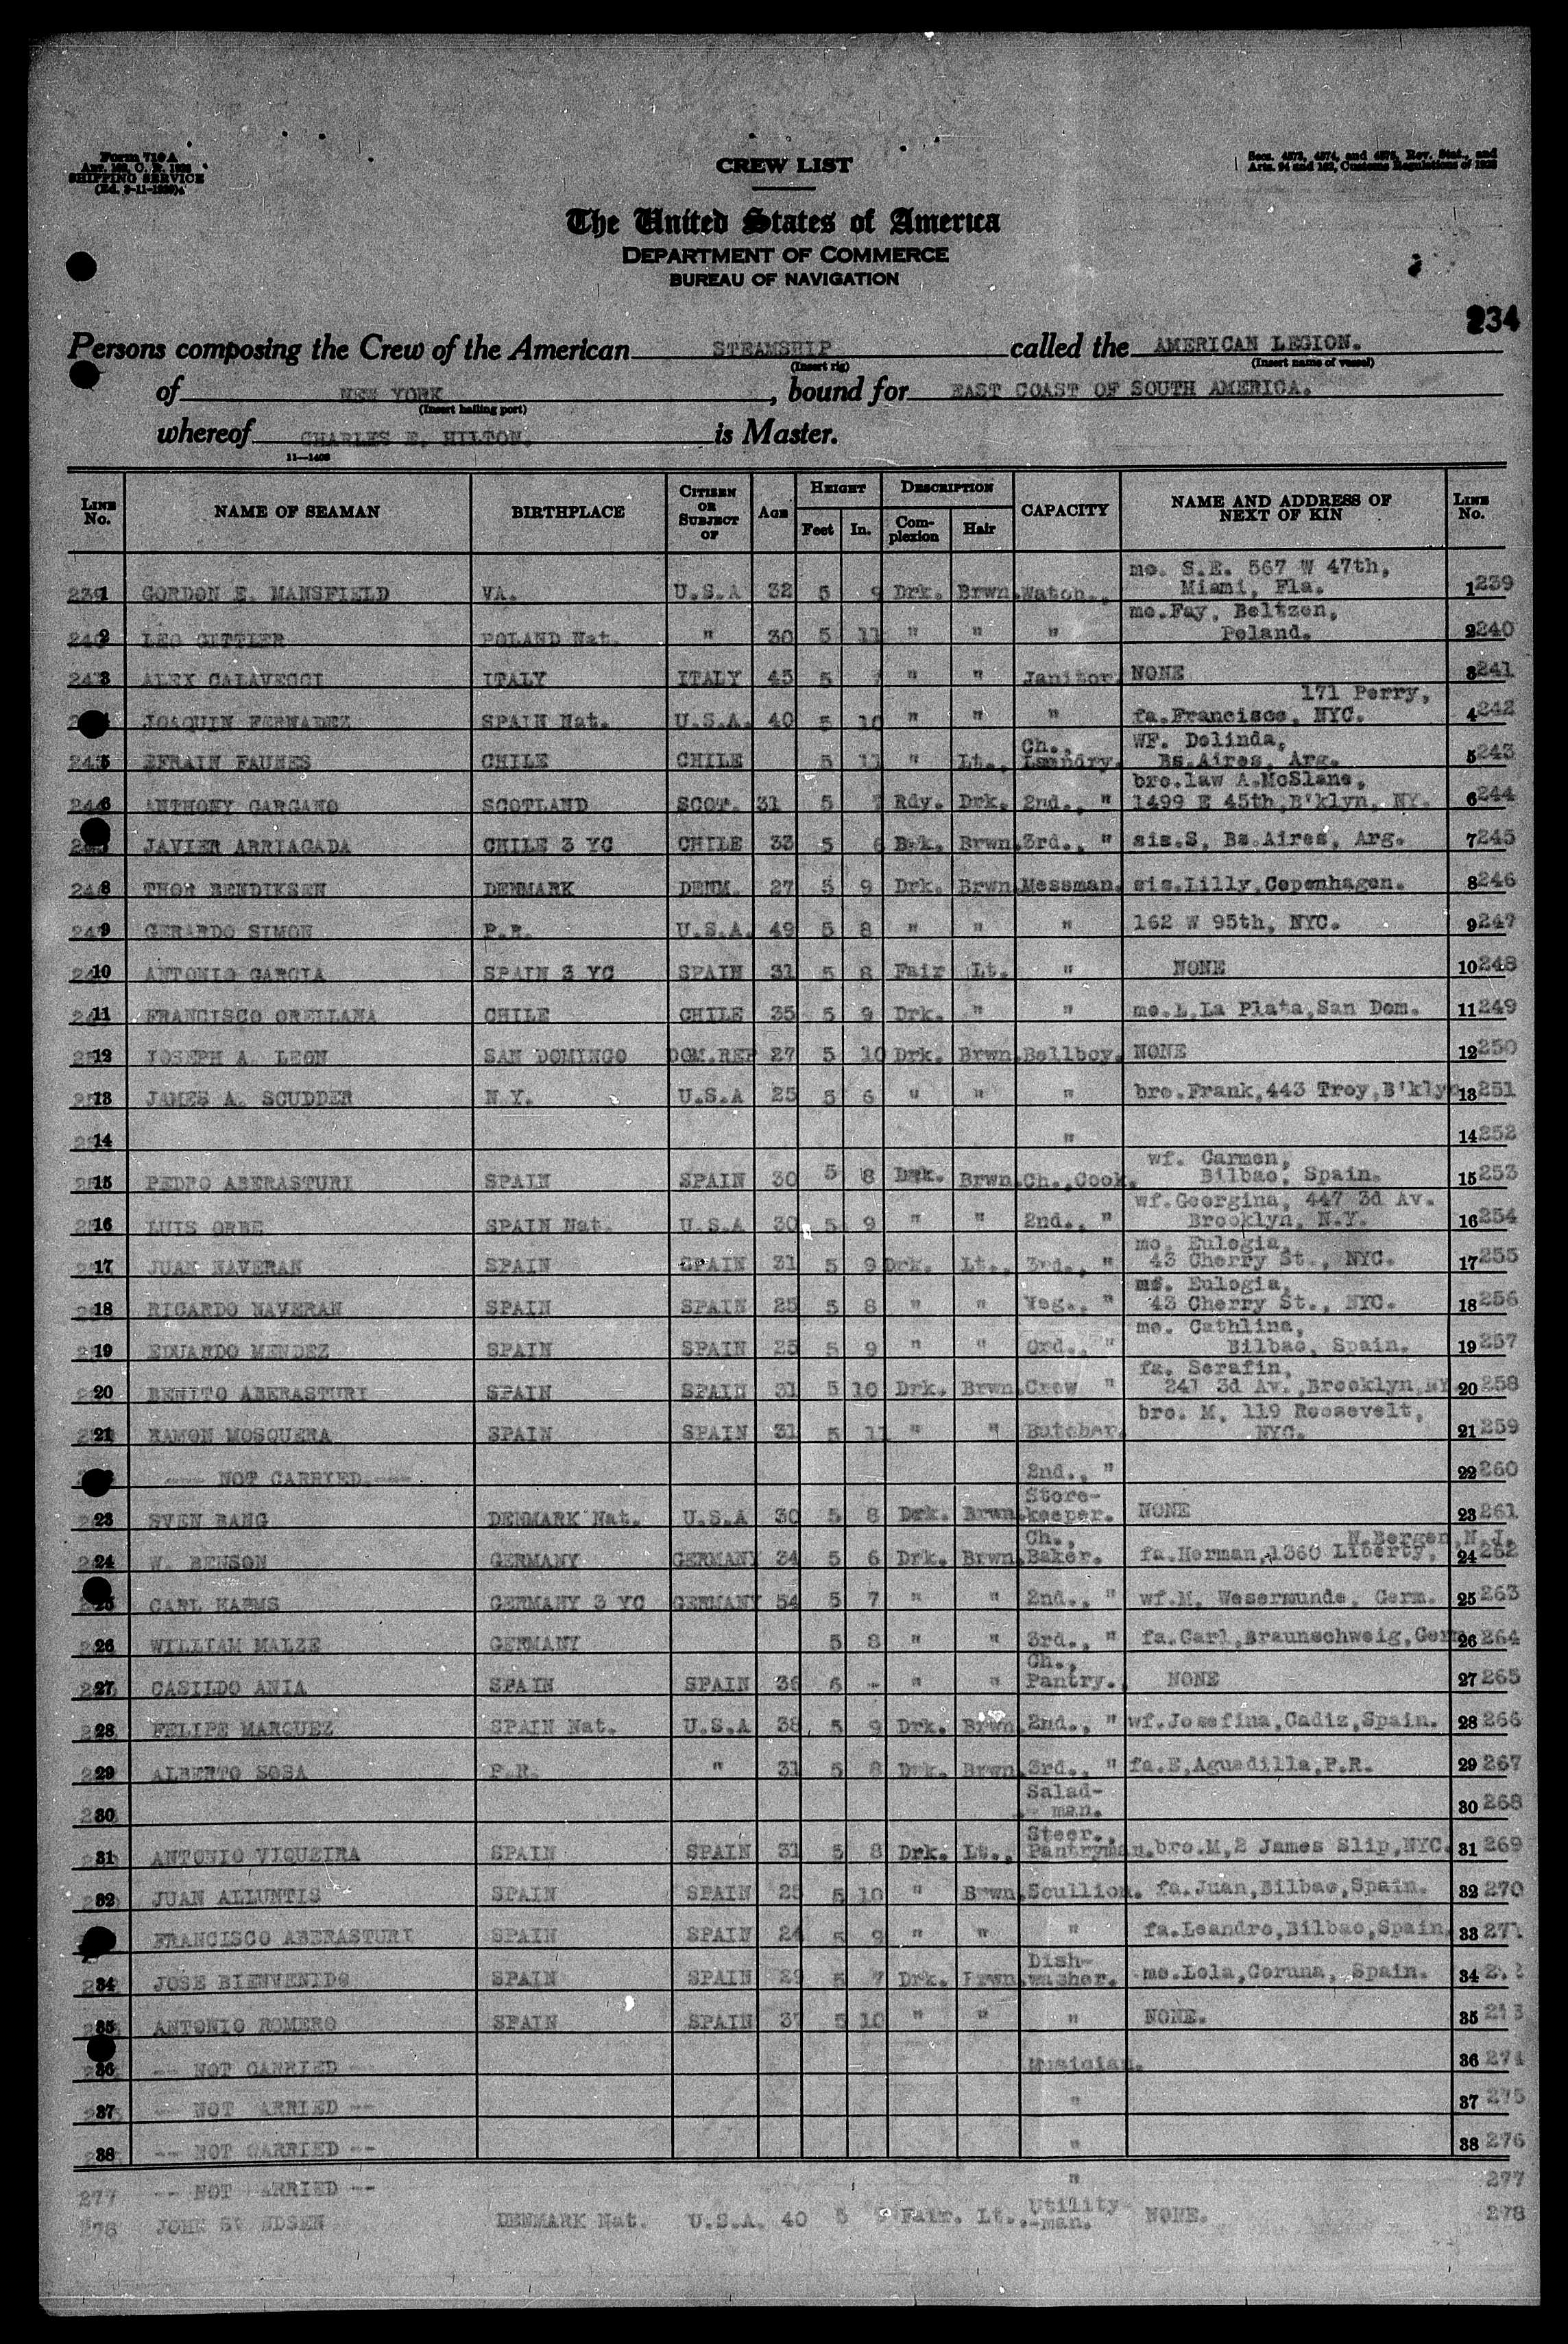 Form 710 A
Art. 162, C. R. 1923
SHIPPING SERVICE
CREW LIST
Secs. 4573, 4574, and 4575, Rev. Stat., and
Arts. 94 and 162, Customs Regulations of 1923
The United States of America
DEPARTMENT OF COMMERCE
BUREAU OF NAVIGATION
234
Persons composing the Crew of the American STEAMSHIP called the AMERICAN LEGION.
(Insert rig) (Insert name of vessel)
of NEW YORK, bound for EAST COAST OF SOUTH AMERICA.
(Insert hailing port)
whereof CHARLES E. HILTON. is Master.
11—1403
LINE No. NAME OF SEAMAN BIRTHPLACE CITIZEN OR SUBJECT OF AGE HEIGHT Feet In. DESCRIPTION Complexion Hair CAPACITY NAME AND ADDRESS OF NEXT OF KIN LINE No.
mo. S.E. 567 W 47th,
1 GORDON E. MANSFIELD VA. U.S.A 32 5 9 Drk. Brwn. Watch., Miami, Fla. 1 239
mo. Fay, Beltzen,
2 LEO GITTLER POLAND Nat. " 30 5 11 " " " Poland. 2 240
3 ALEX CALAVECCI ITALY ITALY 45 5 7 " " Janitor. NONE 3 241
171 Perry,
JOAQUIN FERNADEZ SPAIN Nat. U.S.A. 40 5 10 " " " fa.Francisco, NYC. 4 242
Ch., WF. Dolinda,
5 EFRAIN FAUNES CHILE CHILE 5 11 " Lt., Laundry. Bs.Aires, Arg. 5 243
bro.law A.McSlane,
6 ANTHONY GARGANO SCOTLAND SCOT. 31 5 7 Rdy. Drk. 2nd., " 1499 E 45th,B'klyn, NY. 6 244
JAVIER ARRIAGADA CHILE 3 YC CHILE 33 5 6 Drk. Brwn. 3rd., " sis.S, Bs.Aires, Arg. 7 245
8 THOR BENDIKSEN DENMARK DENM. 27 5 9 Drk. Brwn. Messman. sis.Lilly,Copenhagen. 8 246
9 GERARDO SIMON P.R. U.S.A. 49 5 8 " " " 162 W 95th, NYC. 9 247
10 ANTONIO GARCIA SPAIN 3 YC SPAIN 31 5 8 Fair Lt. " NONE 10 248
11 FRANCISCO ORELLANA CHILE CHILE 35 5 9 Drk. " " mo.L,La Plata,San Dom. 11 249
12 JOSEPH A. LEON SAN DOMINGO DOM.REP 27 5 10 Drk. Brwn. Bellboy. NONE 12 250
13 JAMES A. SCUDDER N.Y. U.S.A 25 5 6 " " " bro.Frank,443 Troy,B'klyn 13 251
14 " 14 252
wf. Carmen,
15 PEDRO ABERASTURI SPAIN SPAIN 30 5 8 Drk. Brwn. Ch.,Cook. Bilbao, Spain. 15 253
wf.Georgina, 447 3d Av.
16 LUIS ORBE SPAIN Nat. U.S.A 30 5 9 " " 2nd., " Brooklyn, N.Y. 16 254
mo. Eulogia,
17 JUAN NAVERAN SPAIN SPAIN 31 5 9 Drk. Lt., 3rd., " 43 Cherry St., NYC. 17 255
Eulogia,
18 RICARDO NAVERAN SPAIN SPAIN 25 5 8 " " Veg., " 43 Cherry St., NYC. 18 256
mo. Cathlina,
19 EDUARDO MENDEZ SPAIN SPAIN 25 5 9 " " Ord., " Bilbao, Spain. 19 257
fa. Serafin,
20 BENITO ABERASTURI SPAIN SPAIN 31 5 10 Drk. Brwn. Crew " 241 3d Av.,Brooklyn,NY 20 258
bro. M, 119 Roosevelt,
21 RAMON MOSQUERA SPAIN SPAIN 31 5 11 " " Butcher. NYC. 21 259
---- NOT CARRIED ---- 2nd., " 22 260
Store-
23 SVEN BANG DENMARK Nat. U.S.A 30 5 8 Drk. Brwn. keeper. NONE 23 261
Ch., N.Bergen,N.J.
24 W. BENSON GERMANY GERMANY 34 5 6 Drk. Brwn. Baker. fa.Herman,1360 Liberty, 24 262
25 CARL HARMS GERMANY 3 YC GERMANY 54 5 7 " " 2nd., " wf.M, Wesermunde, Germ. 25 263
26 WILLIAM MALZE GERMANY 5 8 " " 3rd., " fa.Carl,Braunschweig,Germ 26 264
Ch.,
27 CASILDO ANIA SPAIN SPAIN 36 6 - " " Pantry. NONE 27 265
28 FELIPE MARQUEZ SPAIN Nat. U.S.A 38 5 9 Drk. Brwn. 2nd., " wf.Josefina,Cadiz,Spain. 28 266
29 ALBERTO SOSA P.R. " 31 5 8 Drk. Brwn. 3rd., " fa.E,Aguadilla,P.R. 29 267
Salad-
30 man. 30 268
Steer.,
31 ANTONIO VIQUEIRA SPAIN SPAIN 31 5 8 Drk. Lt., Pantryman. bro.M,2 James Slip,NYC. 31 269
32 JUAN ALLUNTIS SPAIN SPAIN 25 5 10 " Brwn. Scullion. fa.Juan,Bilbao,Spain. 32 270
FRANCISCO ABERASTURI SPAIN SPAIN 24 5 9 " " " fa.Leandro,Bilbao,Spain. 33 271
Dish-
34 JOSE BIENVENIDO SPAIN SPAIN 29 5 7 Drk. Brwn. washer. mo.Lola,Coruna, Spain. 34
35 ANTONIO ROMERO SPAIN SPAIN 37 5 10 " " " NONE. 35 273
36 -- NOT CARRIED -- Musician. 36 274
37 -- NOT ARRIED -- " 37 275
38 -- NOT CARRIED -- " 38 276
277 -- NOT ARRIED -- " 277
Utility
278 JOHN DENMARK Nat. U.S.A. 40 5 9 Fair. Lt., -man. NONE. 278